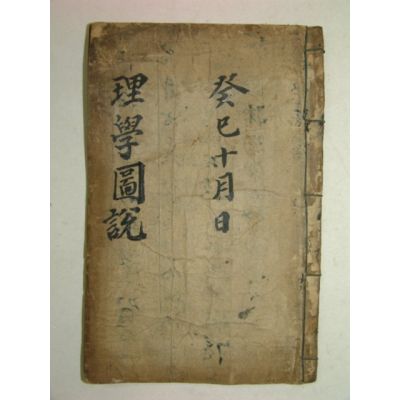 癸巳十月日
理學圖說